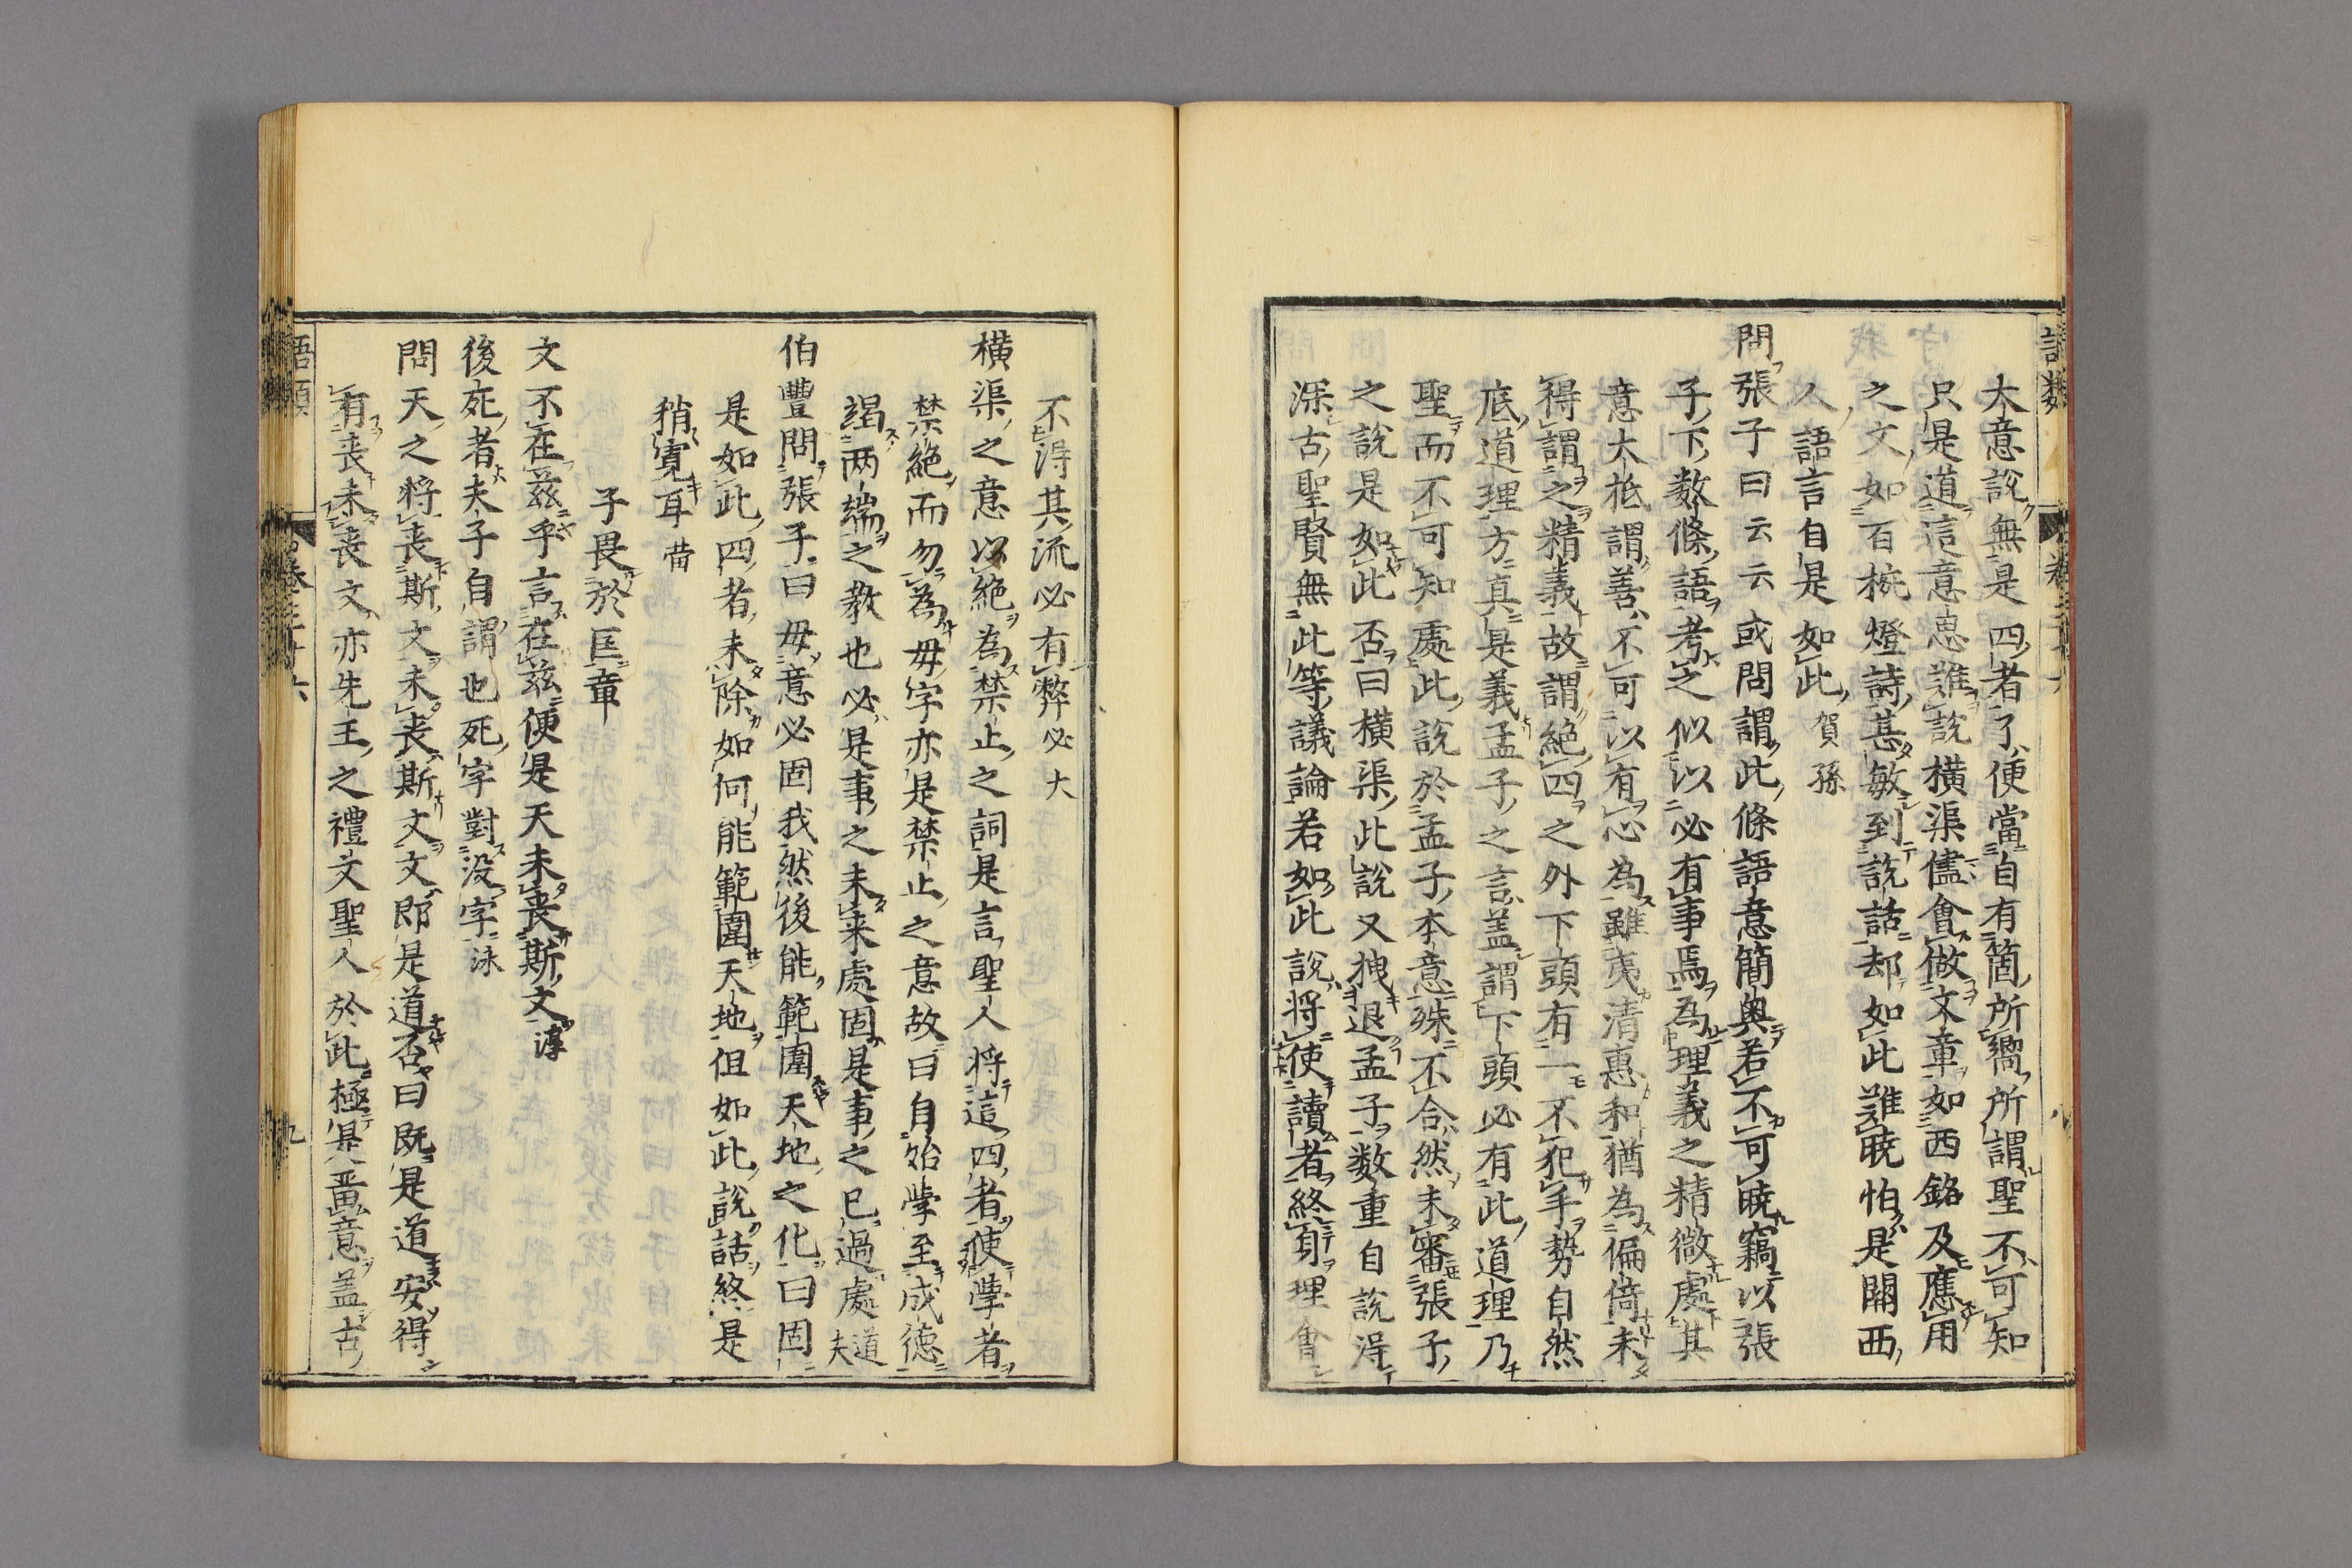 大意說無是四者了便當自有箇所嚮所謂聖不可知
只是道這意思難說橫渠儘會做文章如西銘及應用
之文如百椀燈詩甚敏到說話却如此難曉怕是關西
人語言自是如此 賀孫
問張子曰云云或問謂此條語意簡奧若不可曉竊以張
子下數條語考之似以必有事焉為理義之精微處其
意大抵謂善不可以有心為雖夷清惠和猶為偏倚未
得謂之精義故謂絶四之外下頭有一不犯手勢自然
底道理方真是義孟子之言盖謂下頭必有此道理乃
聖而不可知處此說於孟子本意殊不合然未審張子
之說是如此否曰橫渠此說又拽退孟子数重自說得
深古聖賢無此等議論若如此說將使讀者終身理會
不得其流必有弊 必大
橫渠之意以絶為禁止之詞是言聖人將這四者使學者
禁絶而勿為毋字亦是禁止之意故曰自始學至成德
竭两端之教也必是事之未来處固是事之已過處 道夫
伯豐問張子曰毋意必固我然後能範圍天地之化曰固
是如此四者未除如何能範圍天地但如此說話終是
稍寬耳 㽦
子畏於匡章
文不在茲乎言在茲便是天未丧斯文 淳
後死者夫子自謂也死字對没字 泳
問天之將丧斯文未丧斯文文即是道否曰既是道安得
有丧未丧文亦先王之禮文聖人於此極是畱意盖古
語類
卷三十六
九